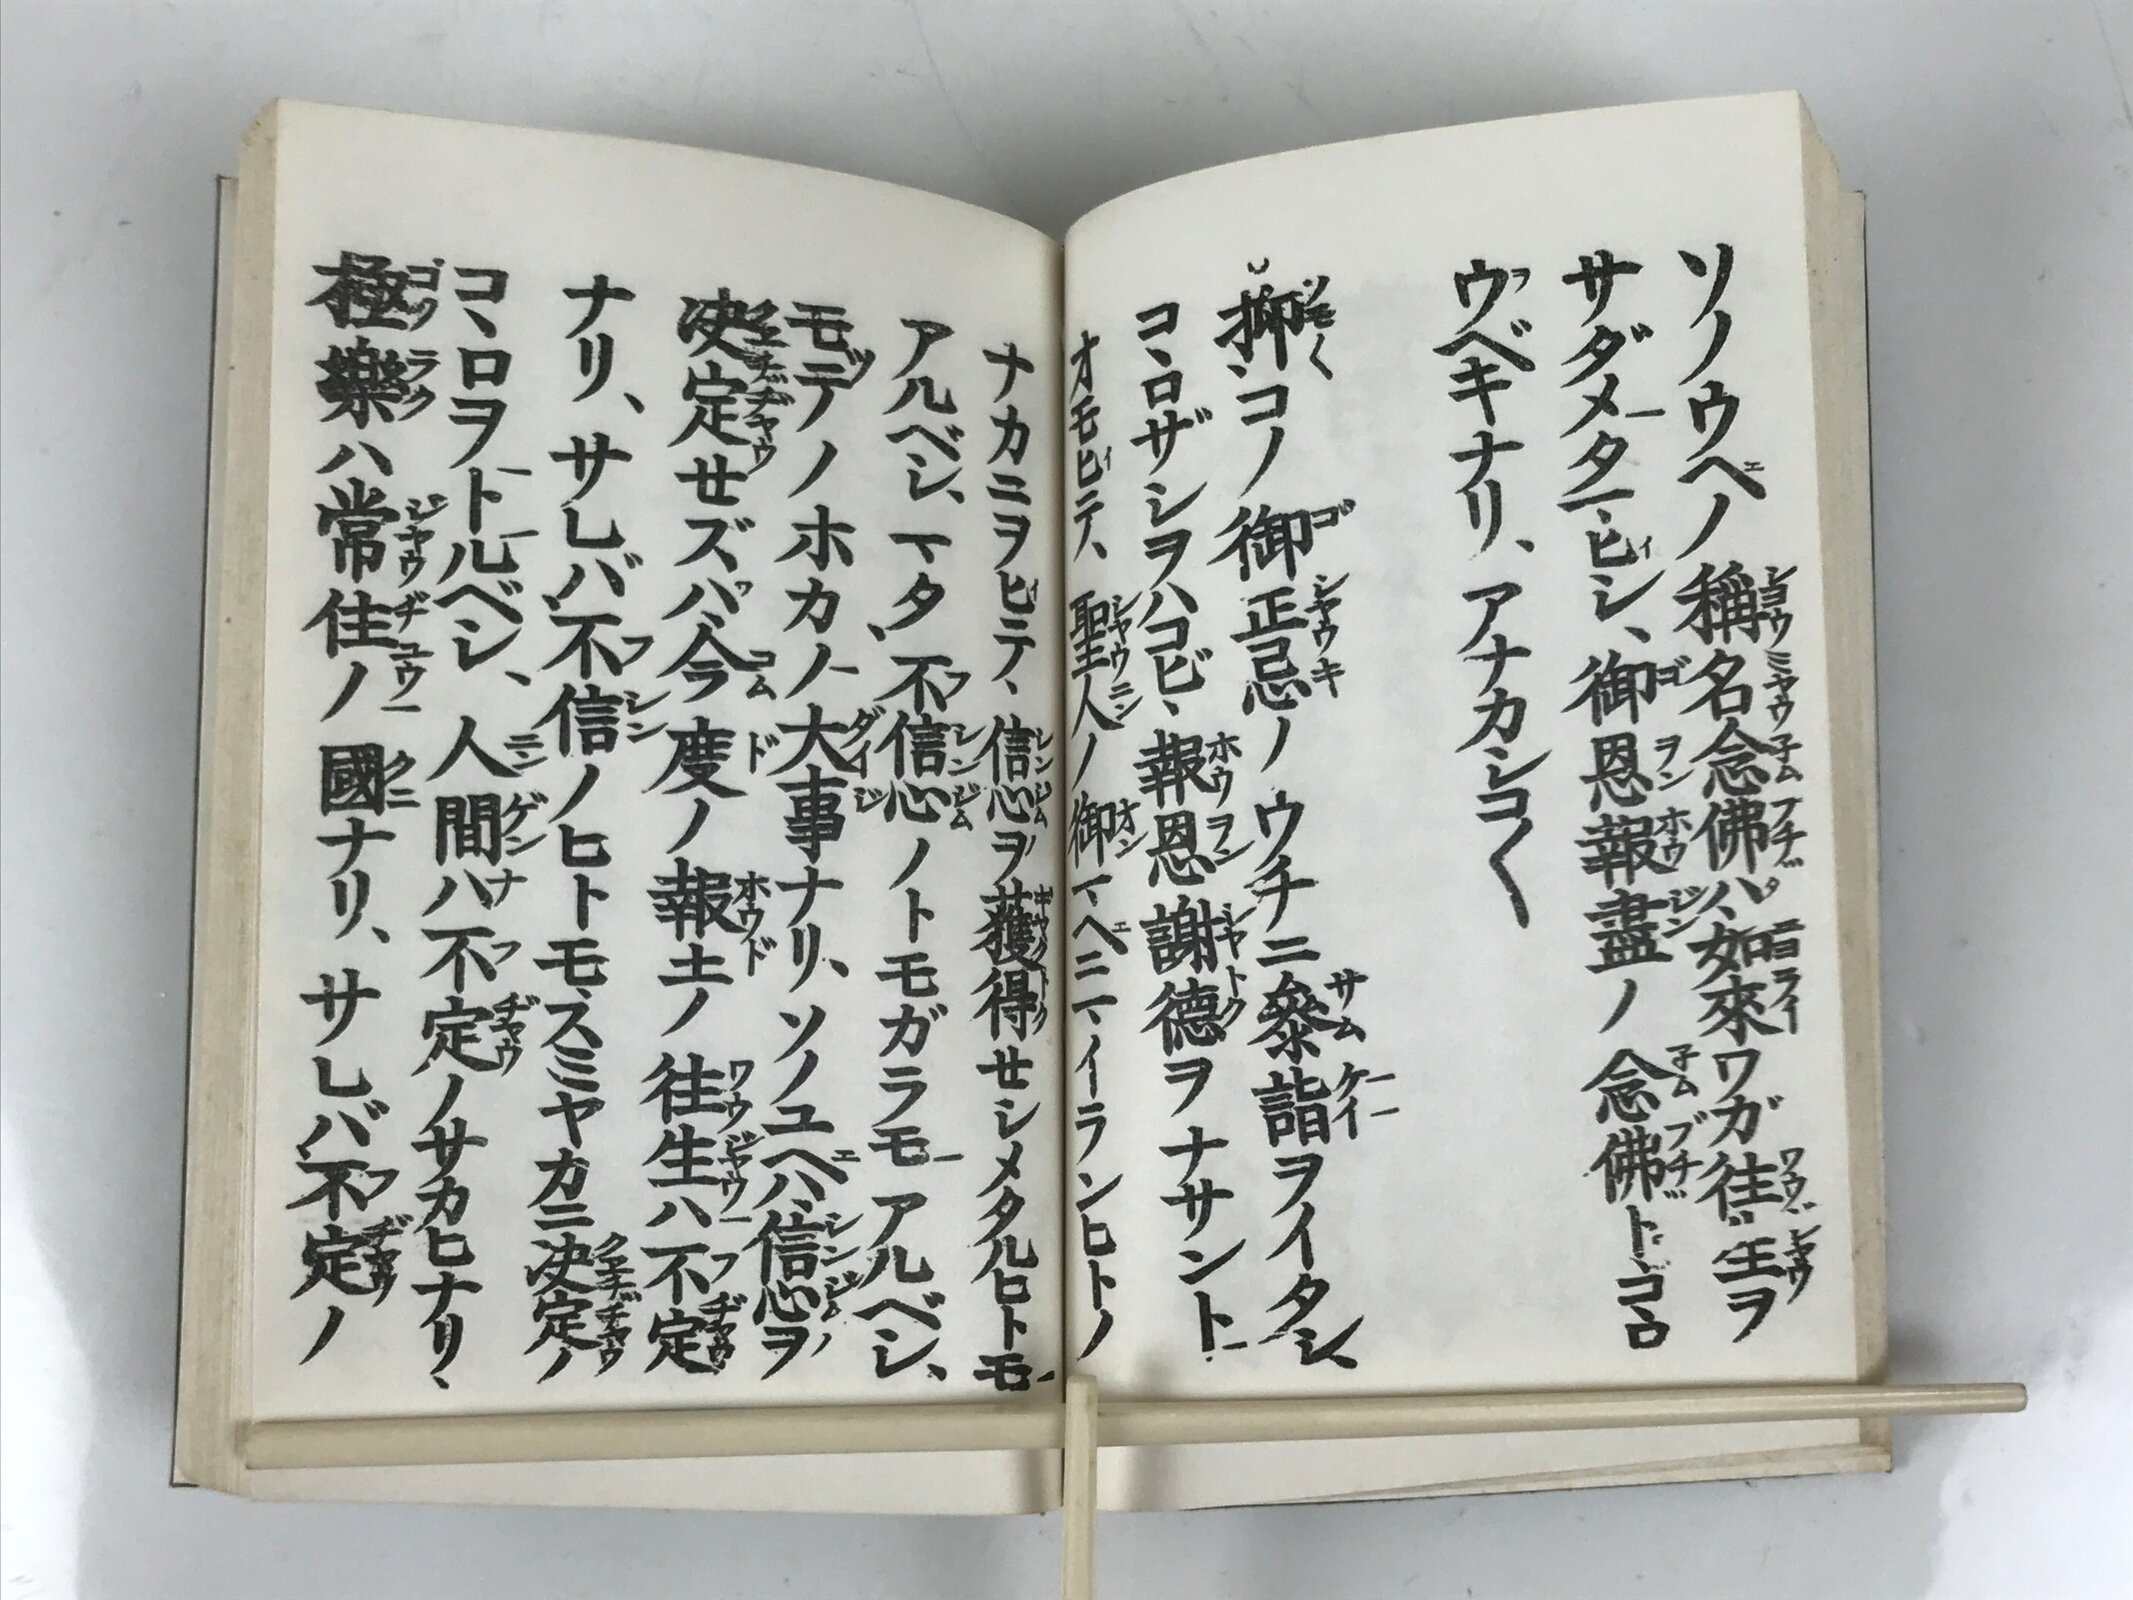 ソノウヘノ稱名念佛ハ、如來ワガ往生ヲ
サダメタマヒシ、御恩報盡ノ念佛トコヽロ
ウベキナリ、アナカシコ〱
抑、コノ御正忌ノウチニ參詣ヲイタシ、
コヽロザシヲハコビ、報恩謝德ヲナサント
オモヒテ、聖人ノ御マヘニマイランヒトノ
ナカニヲヒテ、信心ヲ獲得セシメタルヒトモ
アルベシ、マタ、不信心ノトモガラモアルベシ、
モテノホカノ大事ナリ、ソノユヘハ、信心ヲ
決定セズバ、今度ノ報土ノ往生ハ不定
ナリ、サレバ、不信ノヒトモ、スミヤカニ決定ノ
コヽロヲトルベシ、人間ハ不定ノサカヒナリ、
極樂ハ常住ノ國ナリ、サレバ、不定ノ